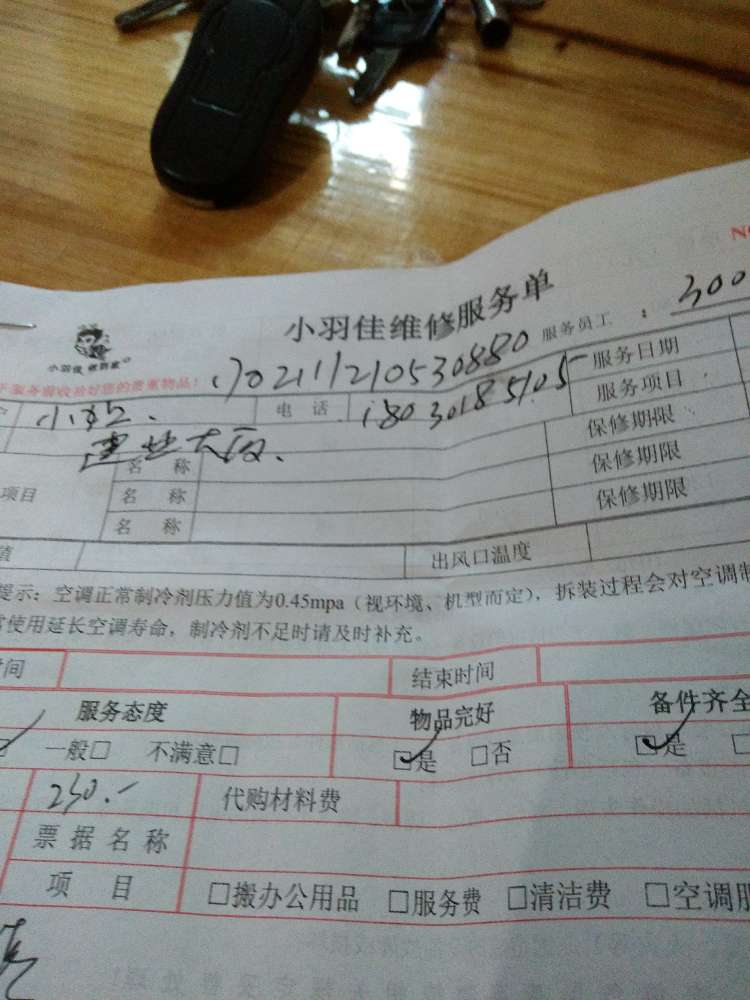 小羽佳维修服务单
小羽佳 修到家
服务员工：300
服务窗收拾好您的贵重物品！
170211121053088​0
服务日期
电 话 18030185105 服务项目
建业大厦.
名 称 保修期限
项目 名 称 保修期限
名 称 保修期限
值 出风口温度
提示：空调正常制冷剂压力值为0.45mpa（视环境、机型而定），拆装过程会对空调制
使用延长空调寿命，制冷剂不足时请及时补充。
时间 结束时间
服务态度 物品完好 备件齐全
一般□ 不满意□ ☑是 □否 ☑是
230.- 代购材料费
票据名称
项 目 □搬办公用品 □服务费 □清洁费 □空调服